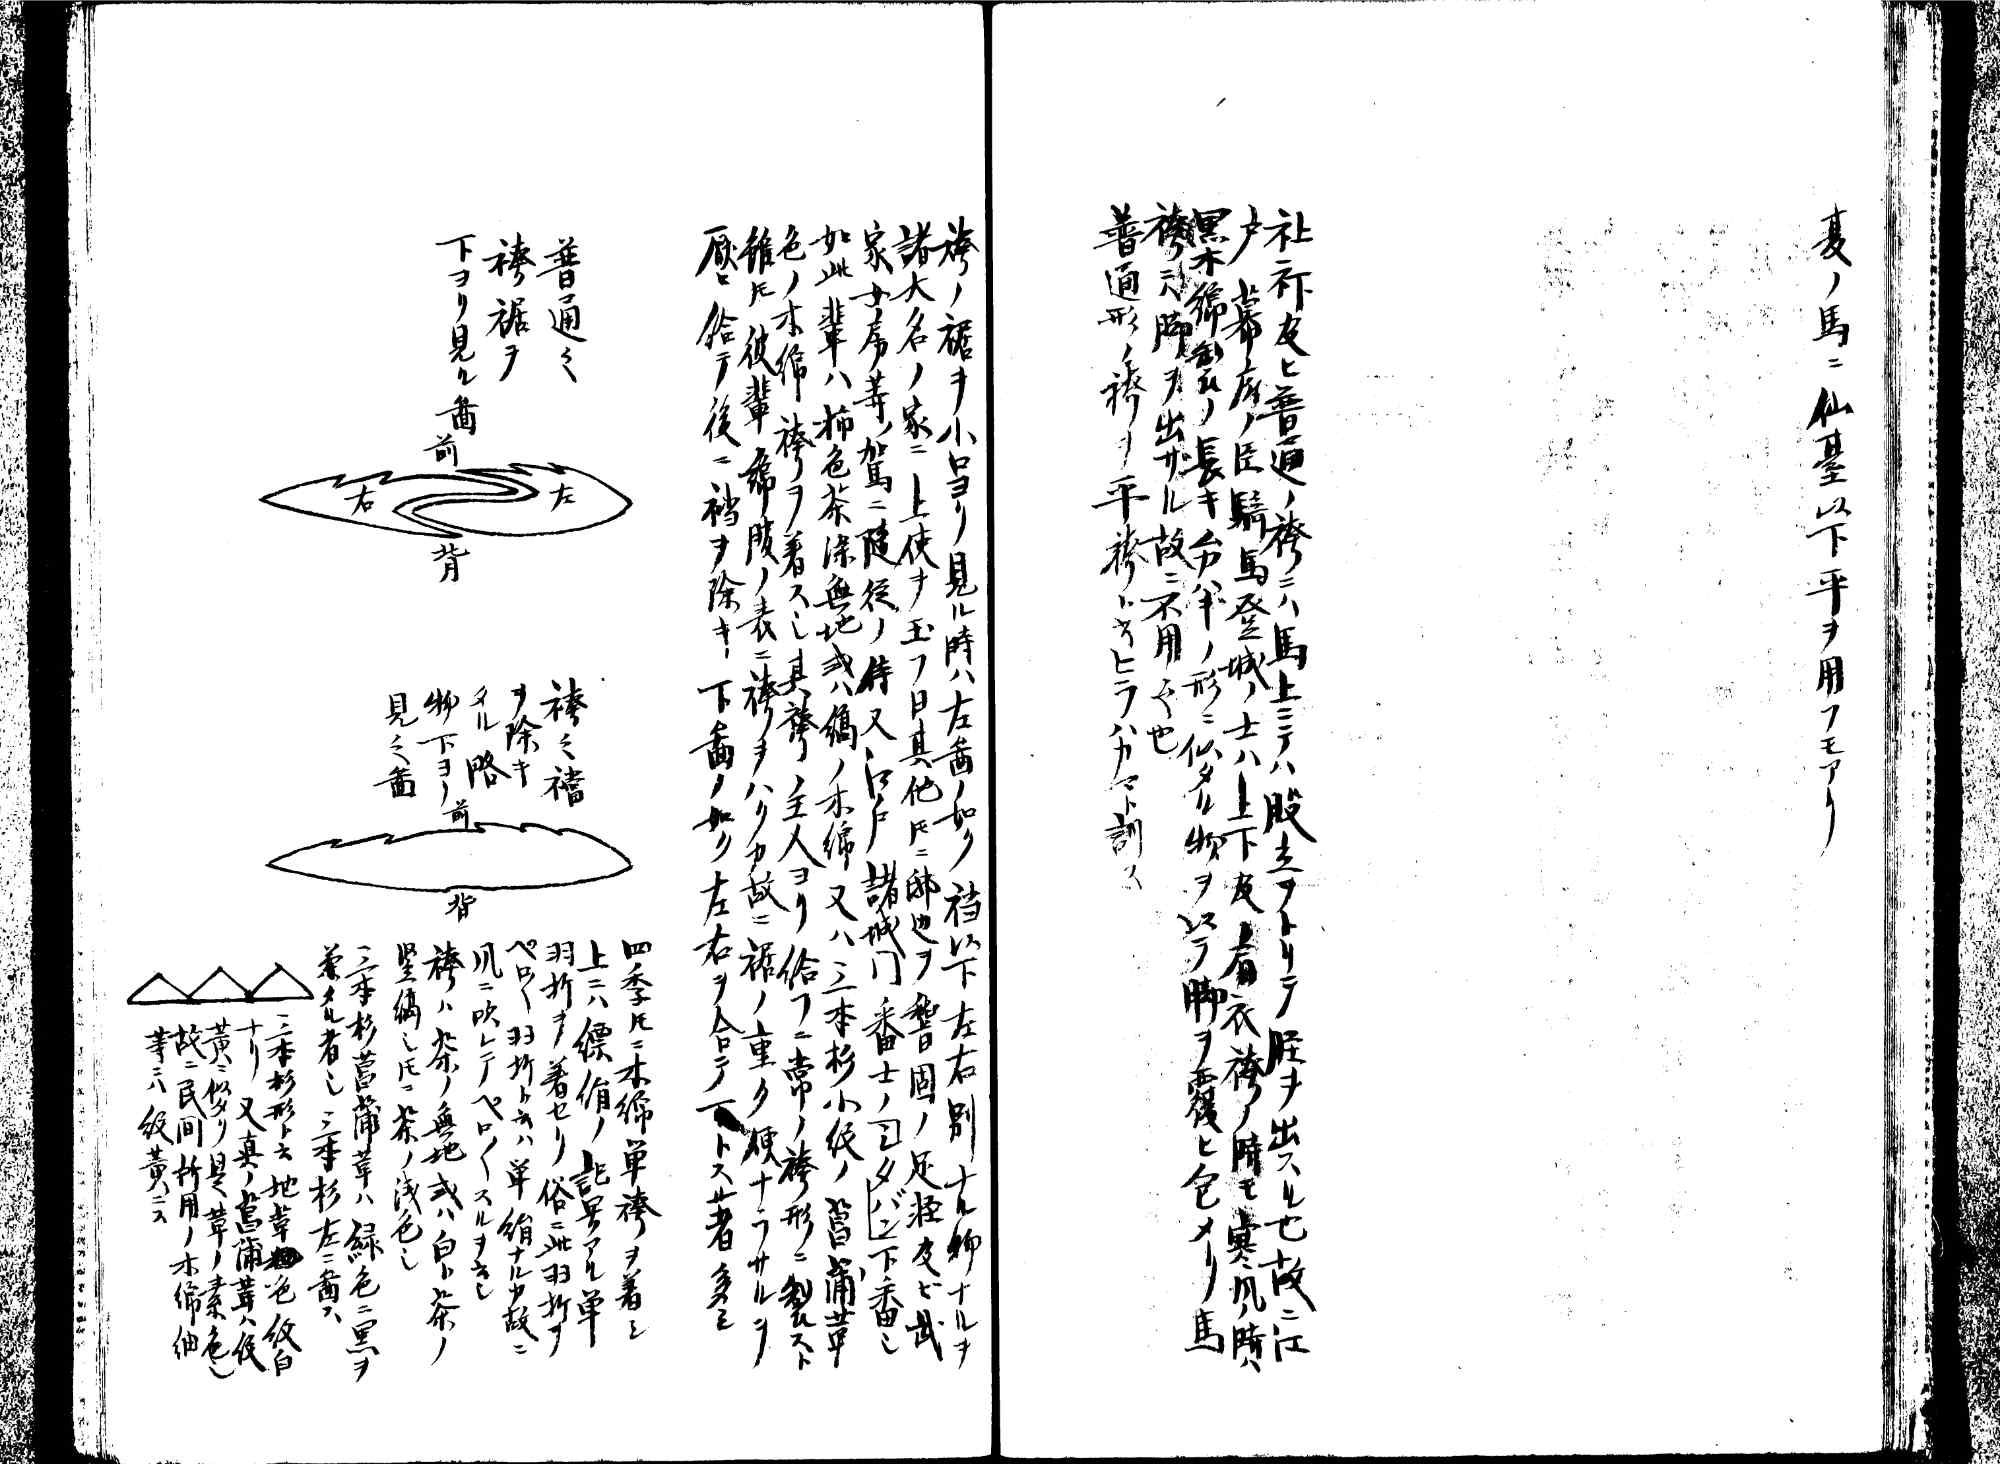 夏ノ馬ニ仙䑓以下平ヲ用フモアリ
社祚及ヒ普通ノ袴ニハ馬上ニテハ股立ヲトリテ脛ヲ出スル也故ニ江
戸幕府ノ臣騎馬登城ノ士ハ上下及肩衣袴ノ時モ寒風ノ時ハ
黒木綿製ノ長キ台バギノ形ニ似タル物ヲ以テ脚ヲ覆ヒ包メリ馬
袴ニハ脚ヲ出サル故ニ不用之也
普通形ノ袴ヲ平袴ト云ヒラハカマト訓ス
袴ノ裾ヲ小口ヨリ見ル時ハ左啚ノ如ク襠以下左右別ナル物ナルヲ
諸大名ノ家ニ上使ヲ玉フ日其他トモニ邸辺ヲ警固ノ足軽及ビ武
家女房等ノ駕ニ随従ノ侍又江戸諸城門番士ノヨタバン下番シ
如此輩ハ柿色茶染無地或ハ縞ノ木綿又ハ三本杉小紋ノ菖蒲革
色ノ木綿袴ヲ着スシ其袴ノ主人ヨリ給フニ常ノ袴形ニ製スト
雖トモ彼輩綿服ノ表ニ袴ヲハクカ故ニ裾ノ重ク硬ナラサルヲ
厭ヒ給テ後ニ襠ヲ除キ下啚ノ如ク左右ヲ合シテ一トス者多シ
普通之
袴裾ヲ
下ヨリ見ル啚
前
左
右
背
袴之襠
ヲ除キ
タル略
物下ヨリ
見之啚
前
背
四季トモニ木綿単袴ヲ着シ
上ニハ縹絹ノ記号アル単
羽折ヲ着セリ俗ニ此羽折ヲ
ペロ〱羽折ト云ハ単絹ナルカ故ニ
風ニ吹レテペロ〱スルヲ云シ
袴ハ茶ノ無地或ハ白ト茶ノ
竪縞シトモニ茶ノ浅色シ
三本杉菖蒲革ハ緑色ニ黒ヲ
兼タル者シ三本杉左ニ啚ス
三本杉形ト云地革色紋白
ナリ又真ノ菖蒲革ハ紋
黄ニ似タリ是革ノ素色シ
故ニ民間所用ノ木綿紬
等ニハ紋黄ニス